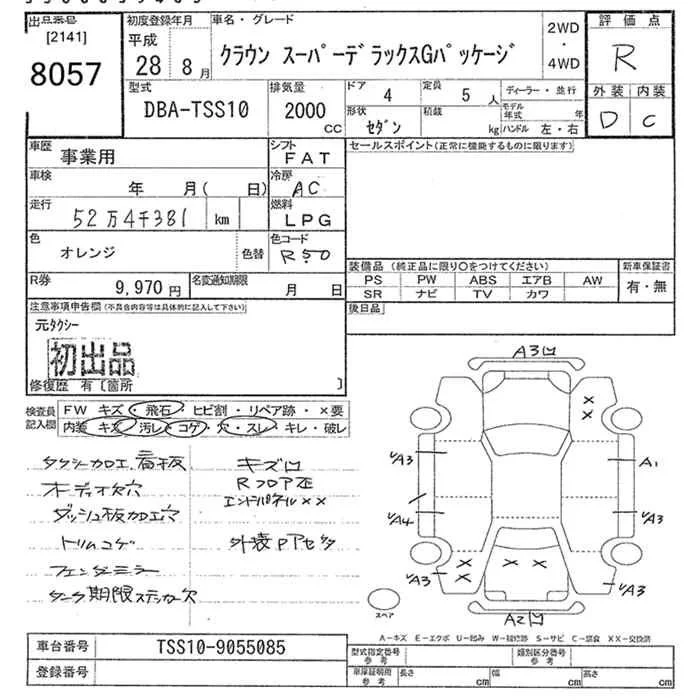 出品番号
[2141]
8057
初度登録年月
平成
28 8月
車名・グレード
クラウン スーパーデラックスGパッケージ
2WD
・
4WD
評価点
R
外装 内装
D C
型式
DBA-TSS10
排気量
2000
CC
ドア
4
定員
5 人
ディーラー・並行
形状
セダン
積載
kg
モデル年式 年
ハンドル 左・右
車歴
事業用
シフト
FAT
セールスポイント(正常に機能するものに限ります)
車検
年 月( 日)
冷房
AC
走行
52万4千381 km
燃料
LPG
色
オレンジ
色替
色コード
R50
R券
9,970円
名変通知期限
月 日
装備品 (純正品に限り○をつけてください)
PS PW ABS エアB AW
SR ナビ TV カワ
新車保証書
有・無
後日品
注意事項申告欄(不具合内容等は具体的に記入して下さい)
元タクシー
初出品
修復歴 有〔箇所 〕
検査員記入欄
FW キズ・飛石・ヒビ割・リペア跡・×要
内装 キズ・汚レ・コゲ・穴・スレ・キレ・破レ
タクシー加工 看板
オーディオ欠穴
ダッシュ板加工穴
トリムコゲ
フェンダーミラー
タンク期限ステッカー欠
キズ凹
RフロアΣ
エンドパネル××
外装Pアセタ
A3凹
A3
A1
A4
A3
A3
A3
A2凹
スペア
A-キズ E-エクボ U-凹み W-補修跡 S-サビ C-腐食 XX-交換済
車台番号
TSS10-9055085
登録番号
型式指定番号
参考
類別区分番号
参考
車庫証明用
参考
長さ cm
幅 cm
高さ cm